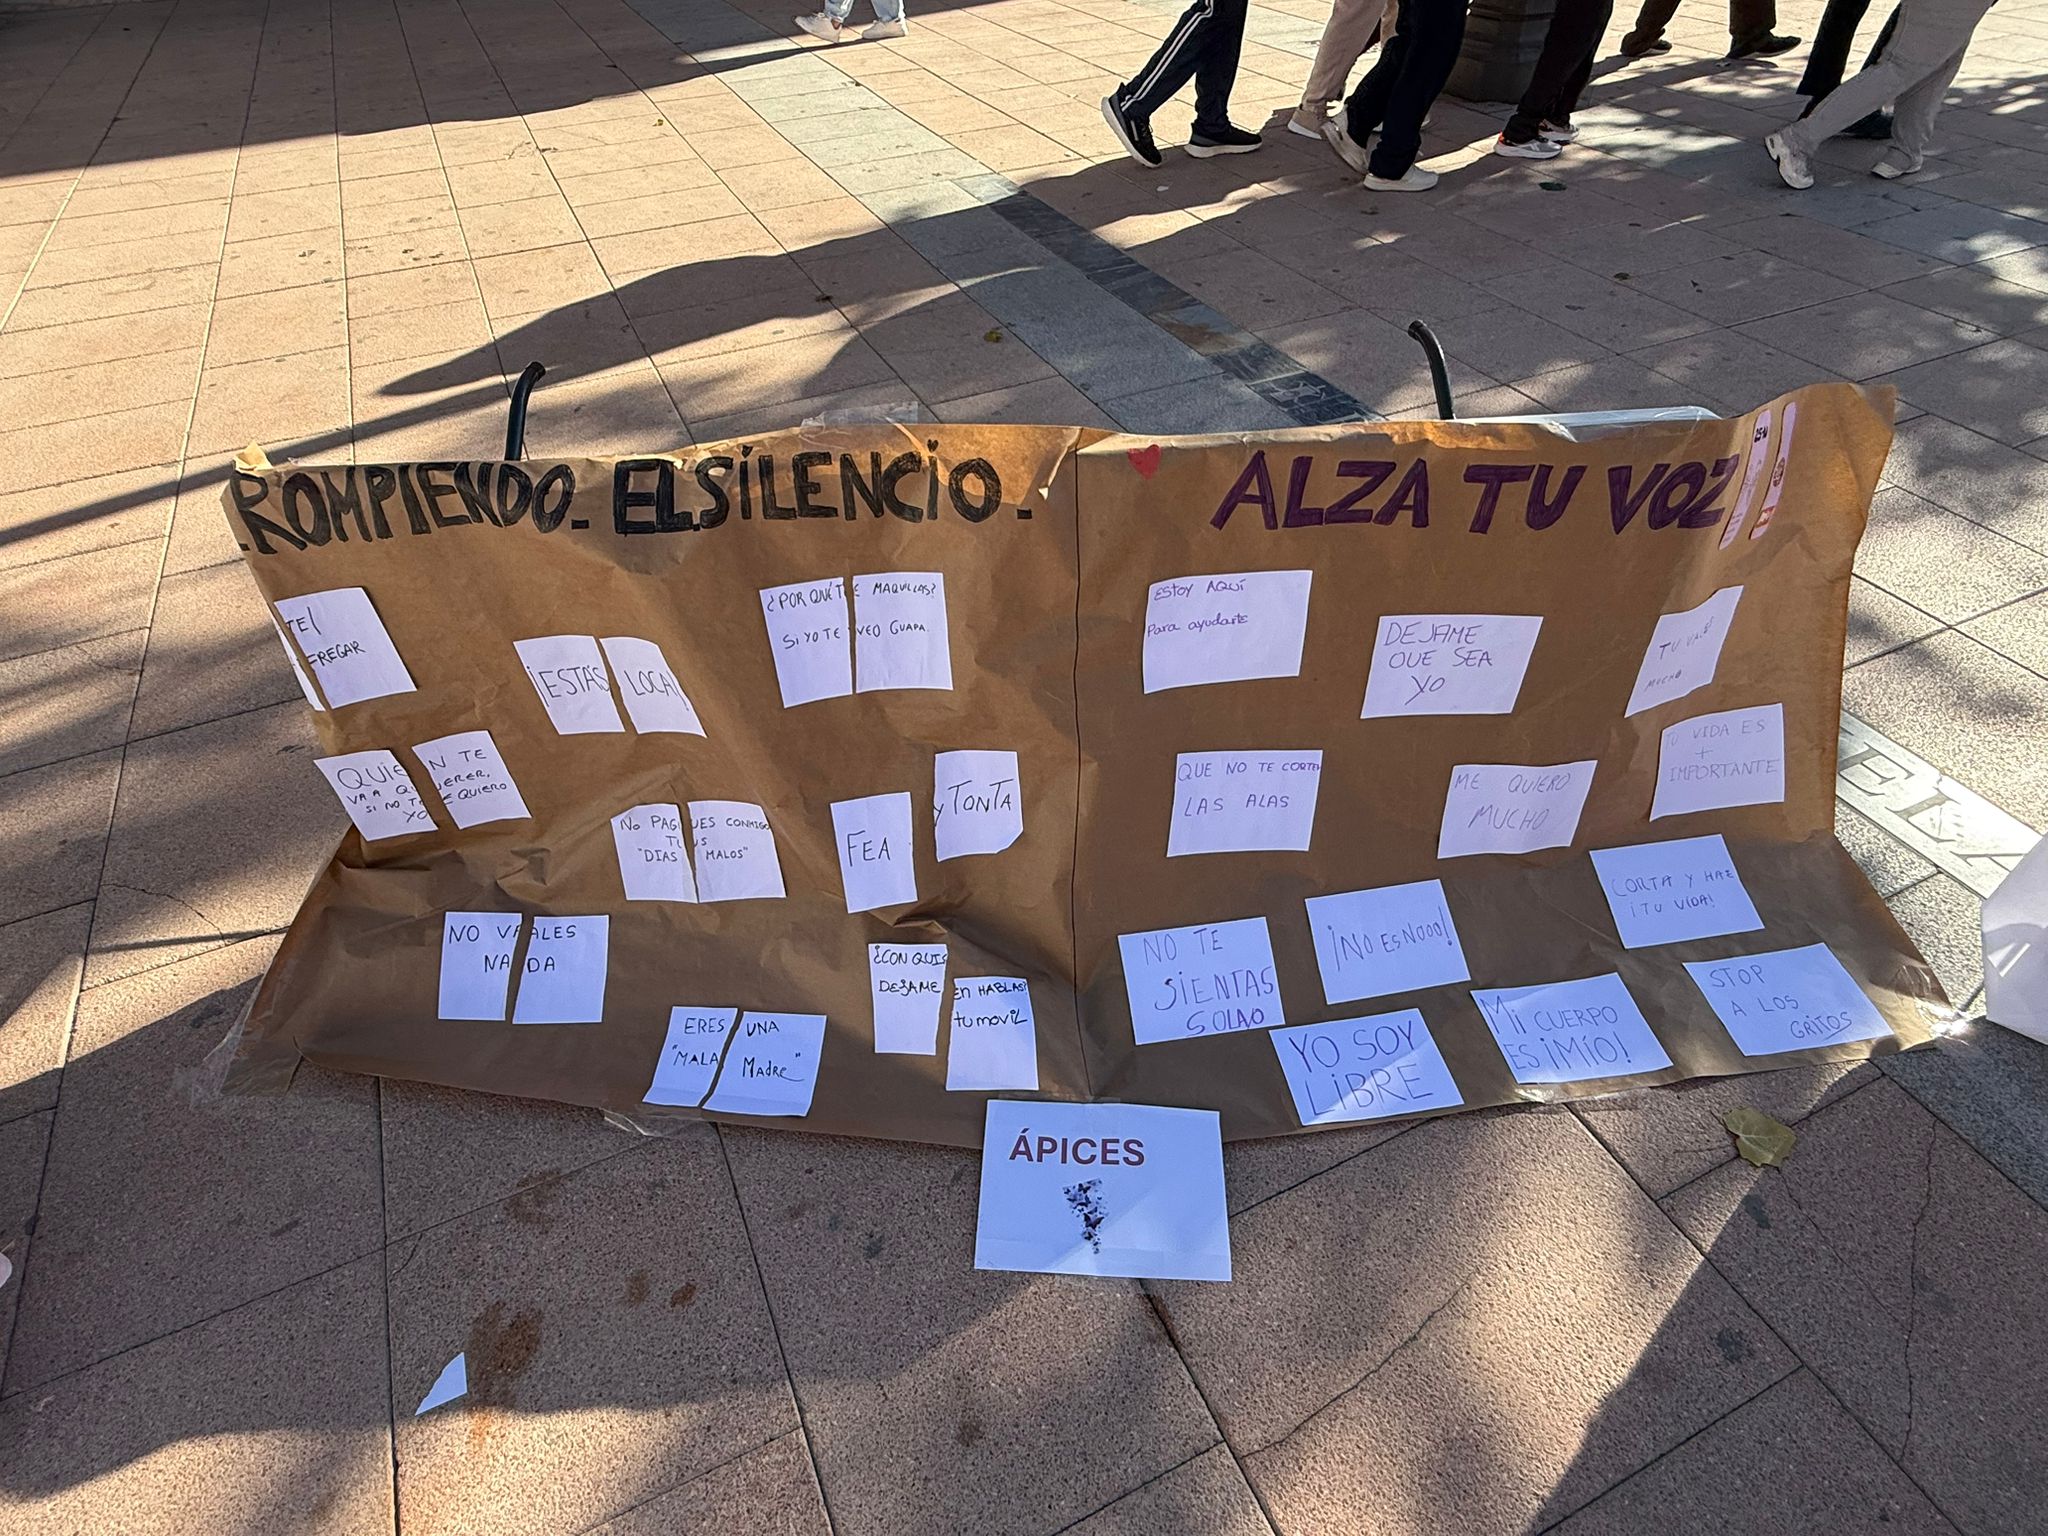 ROMPIENDO. EL SILENCIO.
ALZA TU VOZ
TE!
FREGAR
¡ESTÁS LOCA!
¿POR QUÉ TE MAQUILLAS?
SI YO TE VEO GUAPA.
QUIEN TE
VA A QUERER,
SI NO TE QUIERO
YO
NO PAGUES CONMIGO
TUS
"DIAS MALOS"
FEA
Y TONTA
NO VALES
NADA
¿CON QUIEN HABLAS?
DEJAME tu movil
ERES UNA
"MALA Madre"
Estoy AQUÍ
Para ayudarte
DEJAME
QUE SEA
YO
TU VALES
MUCHO
QUE NO TE CORTEN
LAS ALAS
ME QUIERO
MUCHO
TU VIDA ES
+
IMPORTANTE
NO TE
SIENTAS
SOLA/O
¡NO ES NOOO!
CORTA Y HAZ
¡TU VIDA!
YO SOY
LIBRE
Mi CUERPO
ES ¡MÍO!
STOP
A LOS
GRITOS
ÁPICES